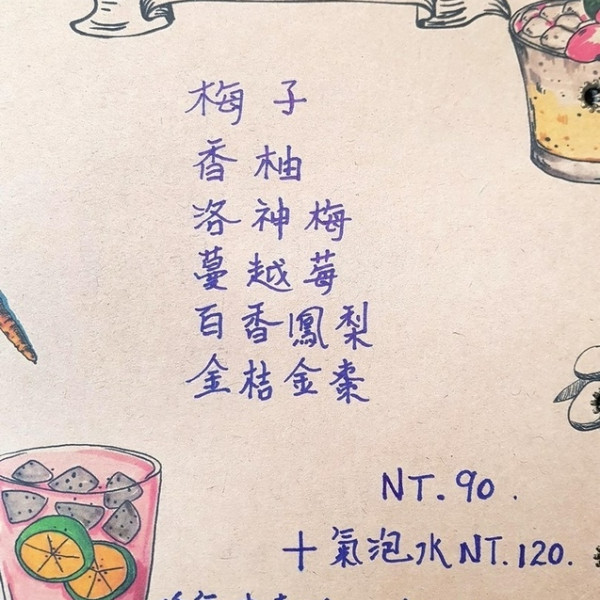 梅子
香柚
洛神梅
蔓越莓
百香鳳梨
金桔金棗
NT.90.
+氣泡水NT.120.